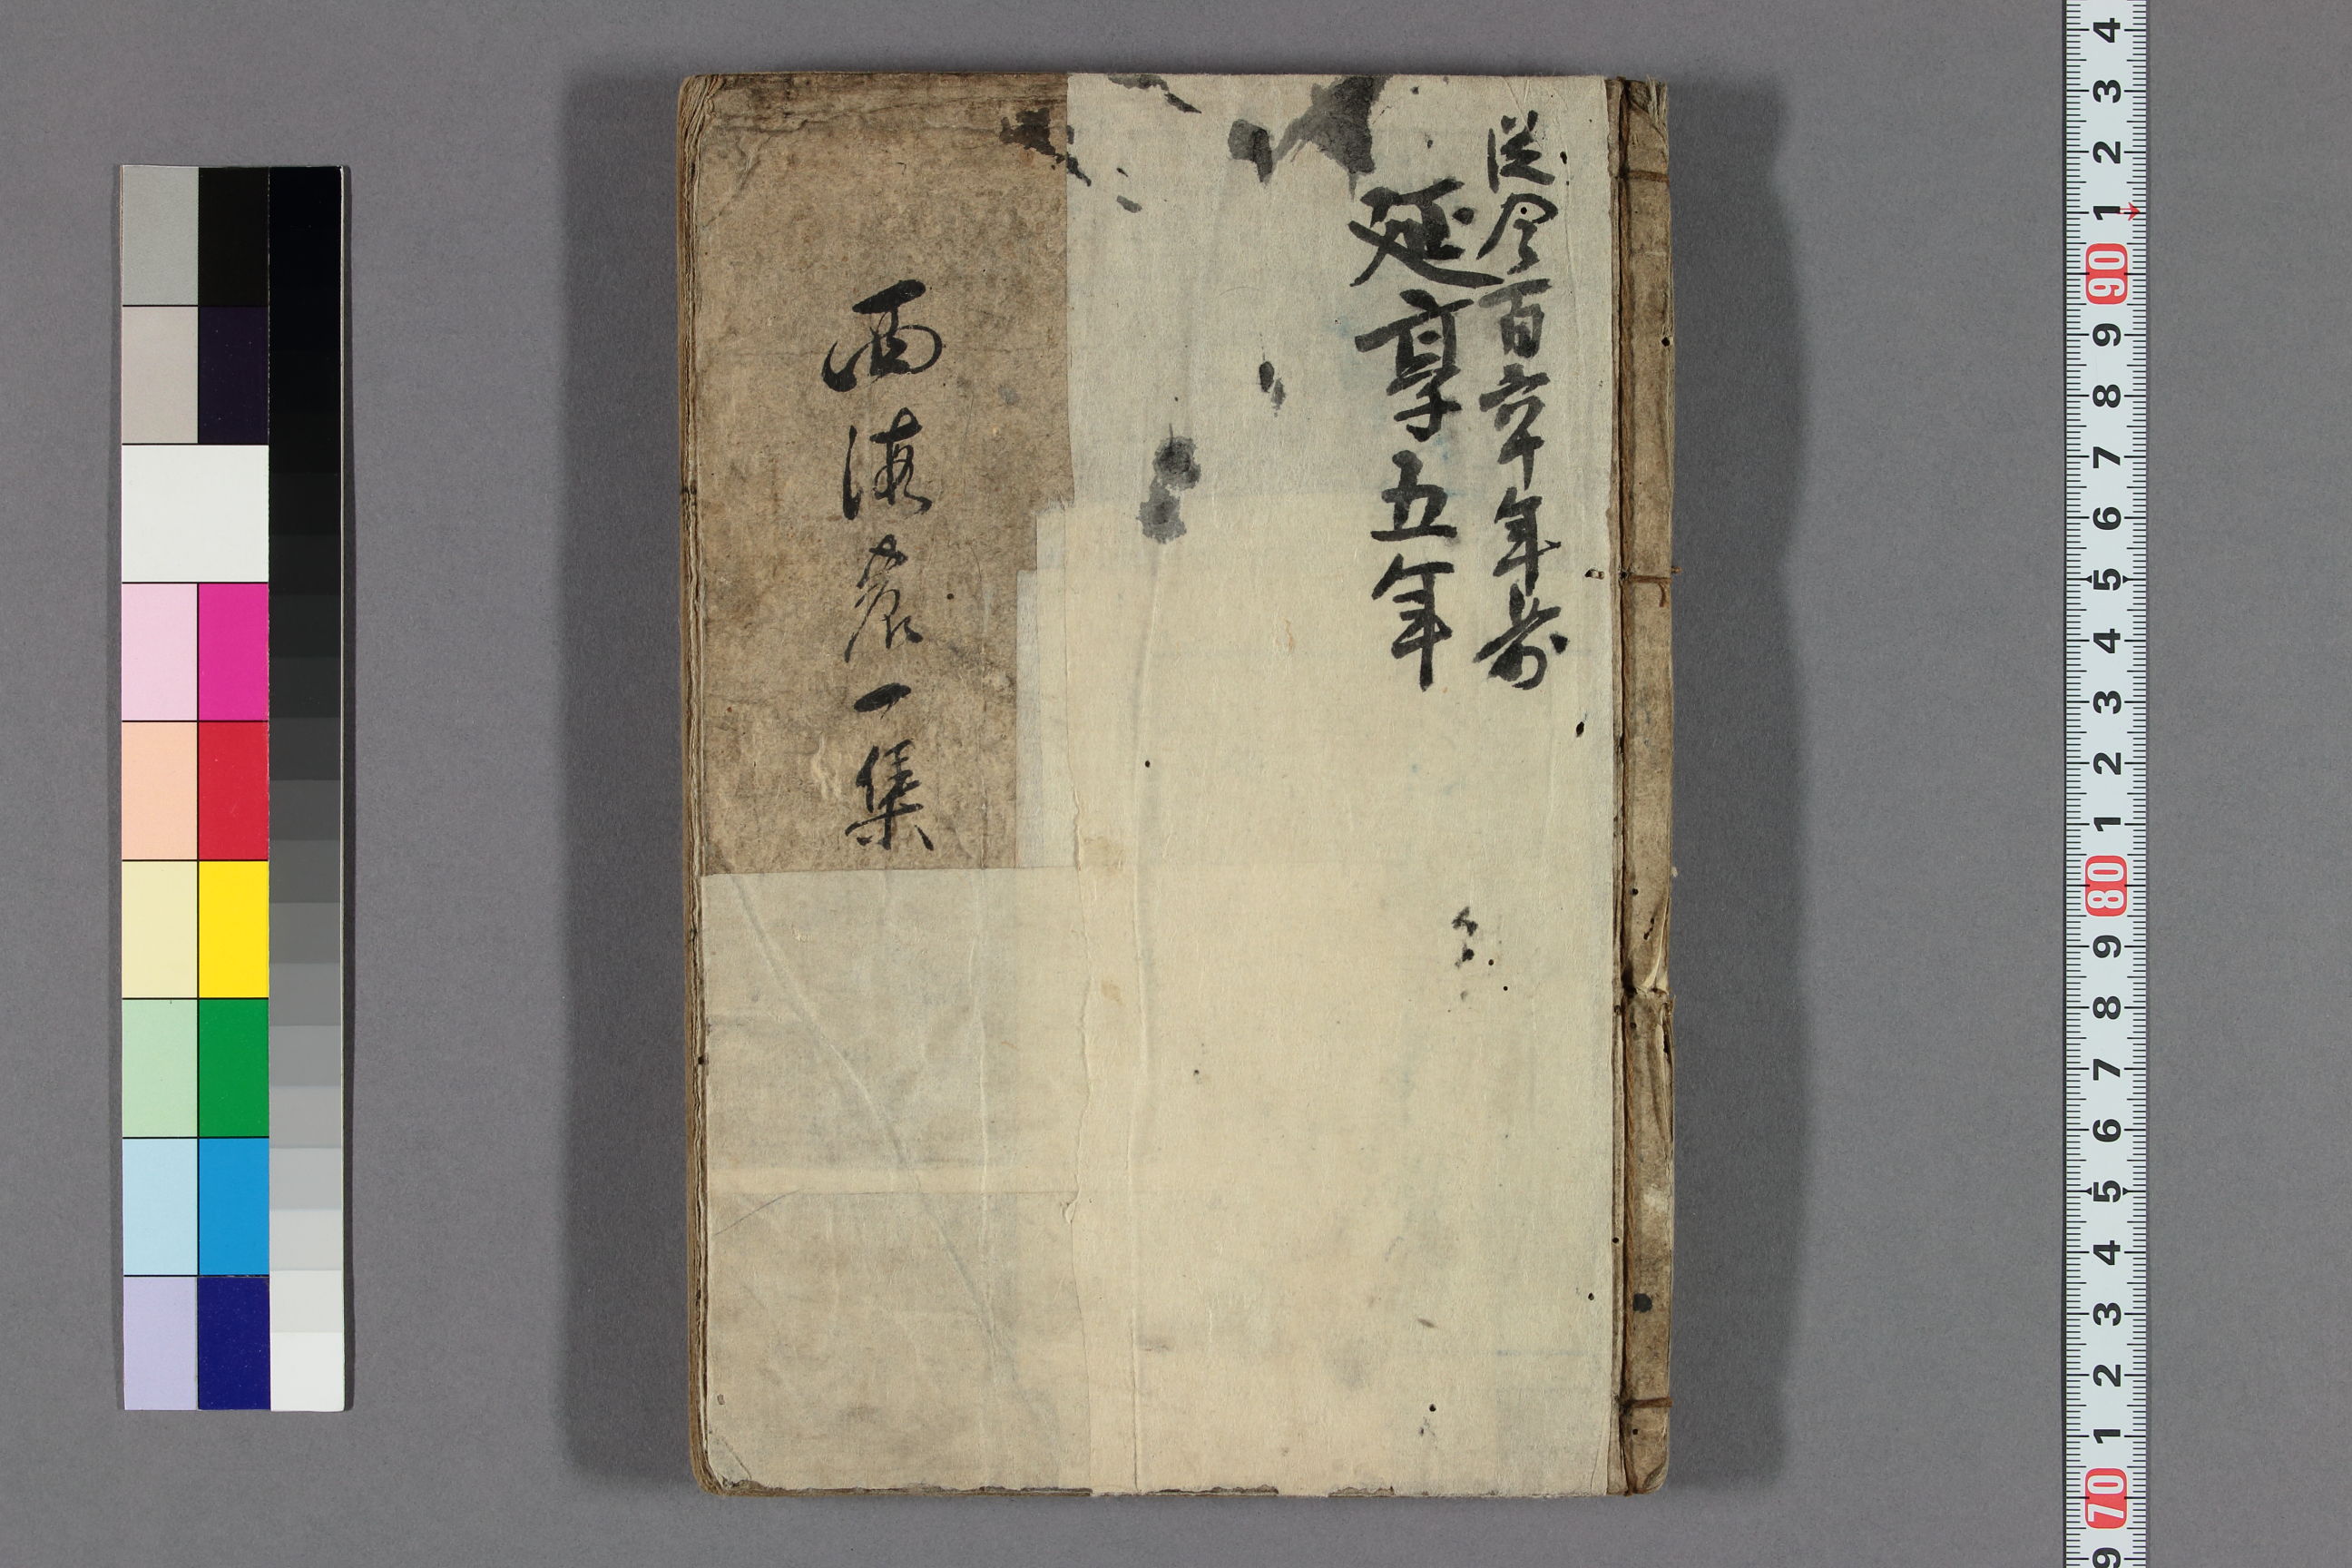 従今百六十年前
延享五年
西海農一集
4
3
2
1
90
9
8
7
6
5
4
3
2
1
80
9
8
7
6
5
4
3
2
1
70
9